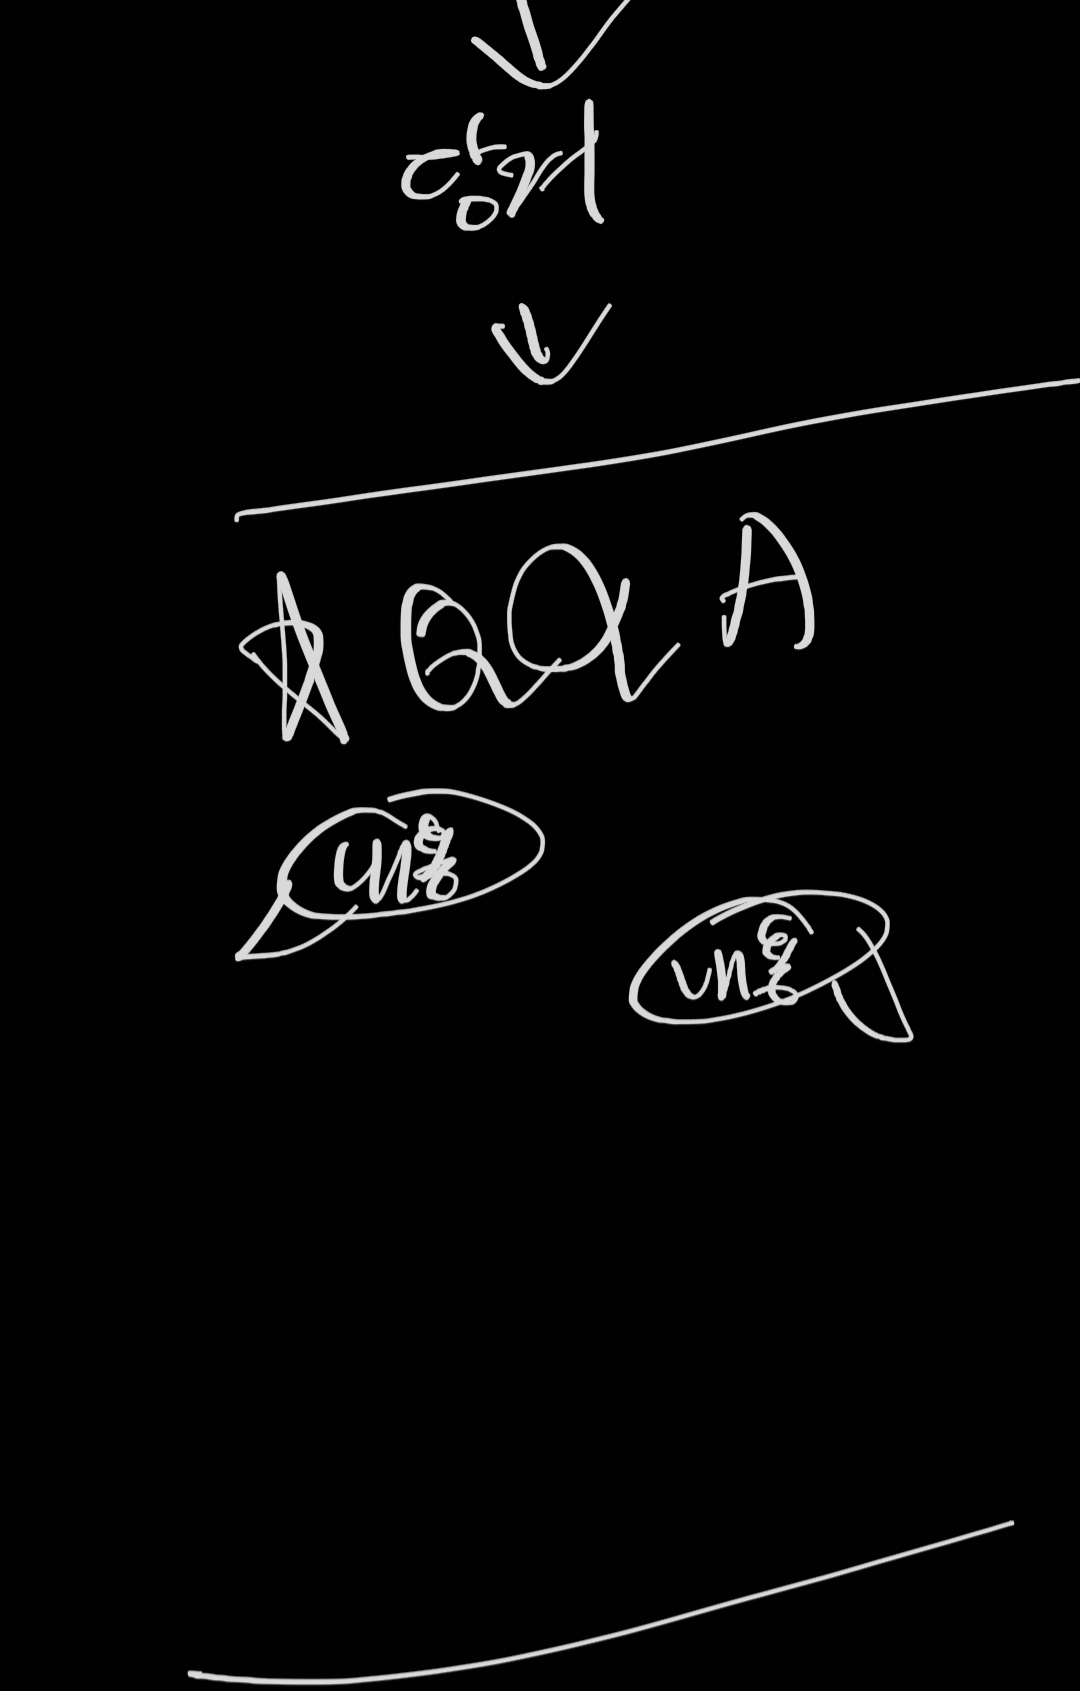 당첨
☆ Q&A
내용
내용